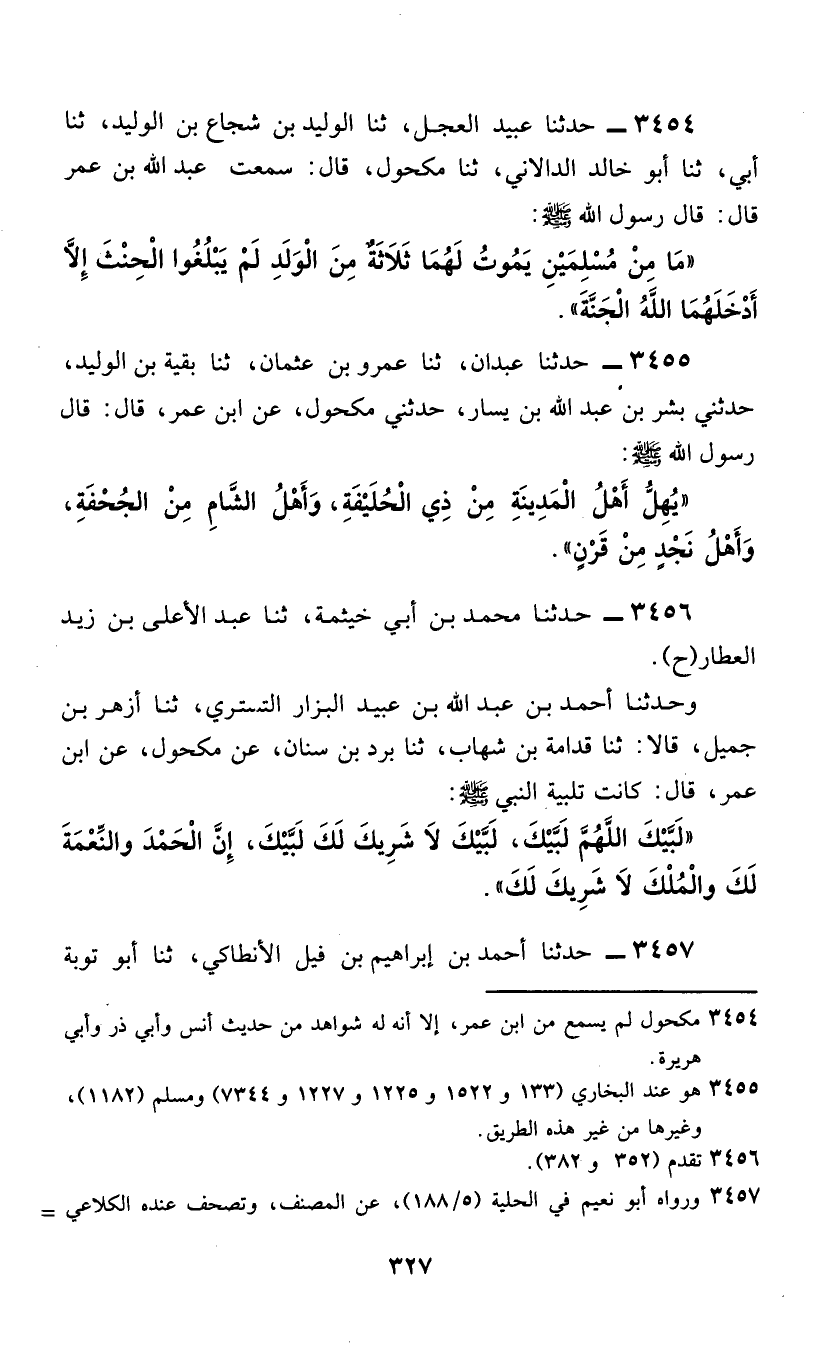 ٣٤٥٤ ــ حدثنا عبيد العجل، ثنا الوليد بن شجاع بن الوليد، ثنا
أبي، ثنا أبو خالد الدالاني، ثنا مكحول، قال: سمعت عبد الله بن عمر
قال: قال رسول الله ﷺ:
«مَا مِنْ مُسْلِمَيْنِ يَمُوتُ لَهُمَا ثَلَاثَةٌ مِنَ الْوَلَدِ لَمْ يَبْلُغُوا الْحِنْثَ إِلاَّ
أَدْخَلَهُمَا اللَّهُ الْجَنَّةَ».
٣٤٥٥ ــ حدثنا عبدان، ثنا عمرو بن عثمان، ثنا بقية بن الوليد،
حدثني بشر بن عبد الله بن يسار، حدثني مكحول، عن ابن عمر، قال: قال
رسول الله ﷺ:
«يُهِلُّ أَهْلُ الْمَدِينَةِ مِنْ ذِي الْحُلَيْفَةِ، وَأَهْلُ الشَّامِ مِنْ الجُحْفَةِ،
وَأَهْلُ نَجْدٍ مِنْ قَرْنٍ».
٣٤٥٦ ــ حدثنا محمد بن أبي خيثمة، ثنا عبد الأعلى بن زيد
العطار(ح).
وحدثنا أحمد بن عبد الله بن عبيد البزار التستري، ثنا أزهر بن
جميل، قالا: ثنا قدامة بن شهاب، ثنا برد بن سنان، عن مكحول، عن ابن
عمر، قال: كانت تلبية النبي ﷺ:
«لَبَّيْكَ اللَّهُمَّ لَبَّيْكَ، لَبَّيْكَ لاَ شَرِيكَ لَكَ لَبَّيْكَ، إِنَّ الْحَمْدَ والنِّعْمَةَ
لَكَ والْمُلْكَ لاَ شَرِيكَ لَكَ».
٣٤٥٧ ــ حدثنا أحمد بن إبراهيم بن فيل الأنطاكي، ثنا أبو توبة
٣٤٥٤ مكحول لم يسمع من ابن عمر، إلا أنه له شواهد من حديث أنس وأبي ذر وأبي
هريرة.
٣٤٥٥ هو عند البخاري (١٣٣ و ١٥٢٢ و ١٢٢٥ و ١٢٢٧ و ٧٣٤٤) ومسلم (١١٨٢)،
وغيرها من غير هذه الطريق.
٣٤٥٦ تقدم (٣٥٢ و ٣٨٢).
٣٤٥٧ ورواه أبو نعيم في الحلية (١٨٨/٥)، عن المصنف، وتصحف عنده الكلاعي =
٣٢٧